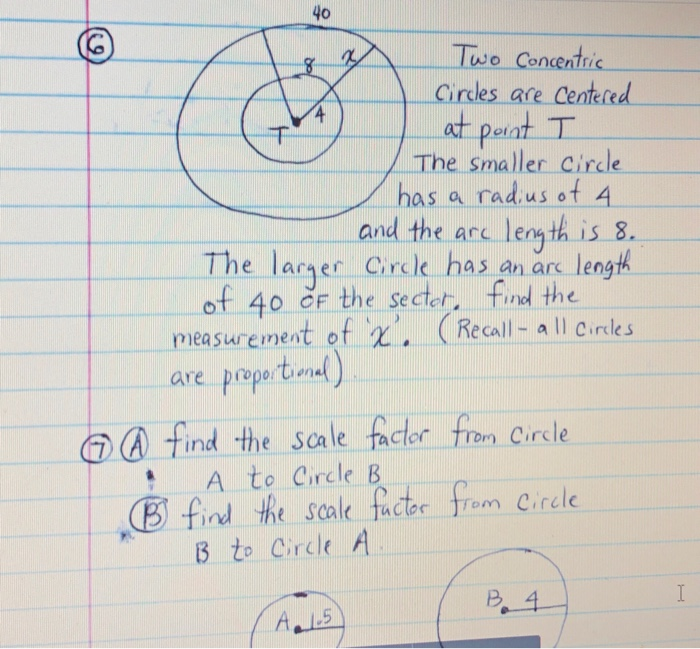 40
6
8 x
4
T
Two Concentric
Circles are Centered
at point T
The smaller Circle
has a radius of 4
and the arc length is 8.
The larger Circle has an arc length
of 40 OF the sector. find the
measurement of 'x'. (Recall - all Circles
are proportional)
7 A find the scale factor from Circle
A to Circle B
B find the scale factor from Circle
B to Circle A.
B 4
A 1.5